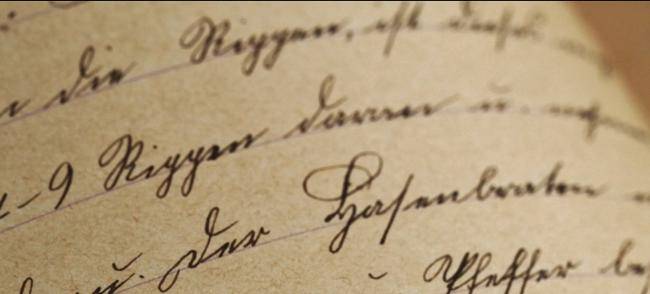 die Rippen, ist
-9 Rippen daran u.
u. der Hasenbraten
Pfeffer be